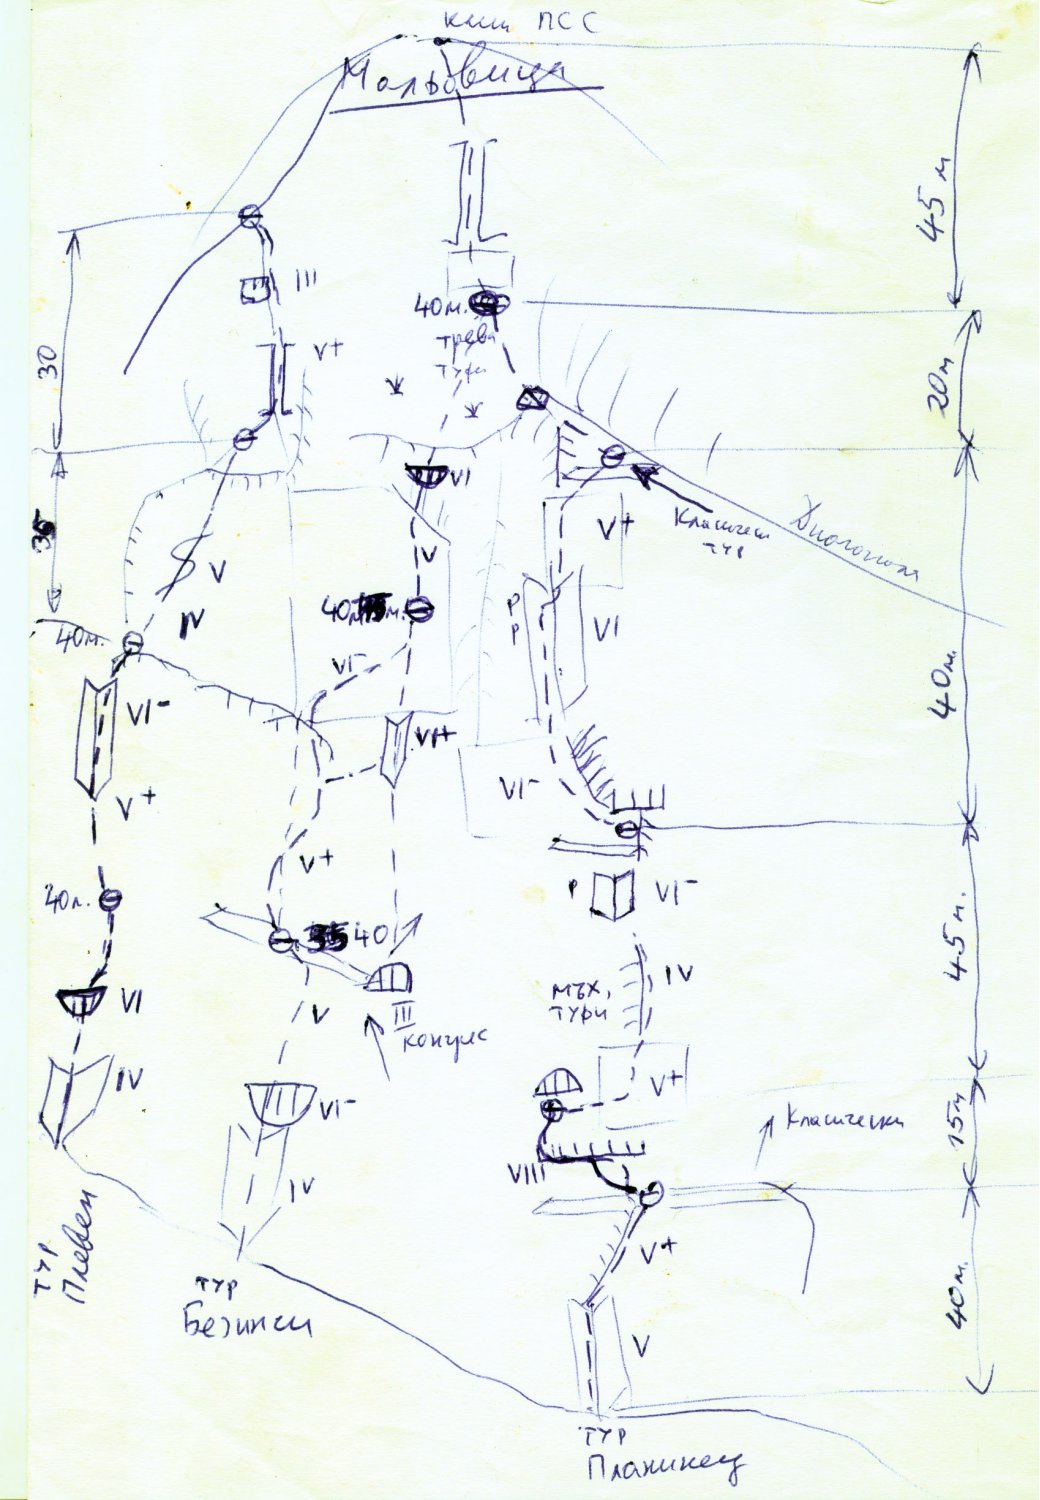 към ПСС
Мальовица
45 м
III
40м.
трева
туфи
V+
30
20м
VI
V+
Класически
тур
Диагонал
V
V
IV
40м.
VI
35
P
P
40м.
VI-
40м.
VI-
VI+
VI-
V+
V+
40м.
P
VI-
40
45 м.
IV
мъх,
туфи
VI
V
III
конгрес
V+
IV
VI-
15м
Класически
VIII
IV
V+
тур
Плевен
40м.
тур
Безинги
V
тур
Планинец